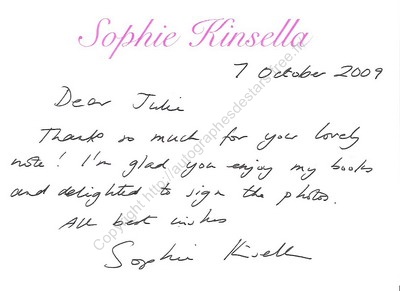 Sophie Kinsella
7 October 2009
Dear Julie
Thanks so much for your lovely
note! I'm glad you enjoy my books
and delighted to sign the photos.
All best wishes
Sophie Kinsella
Copyright http://autographesdestars.free.fr